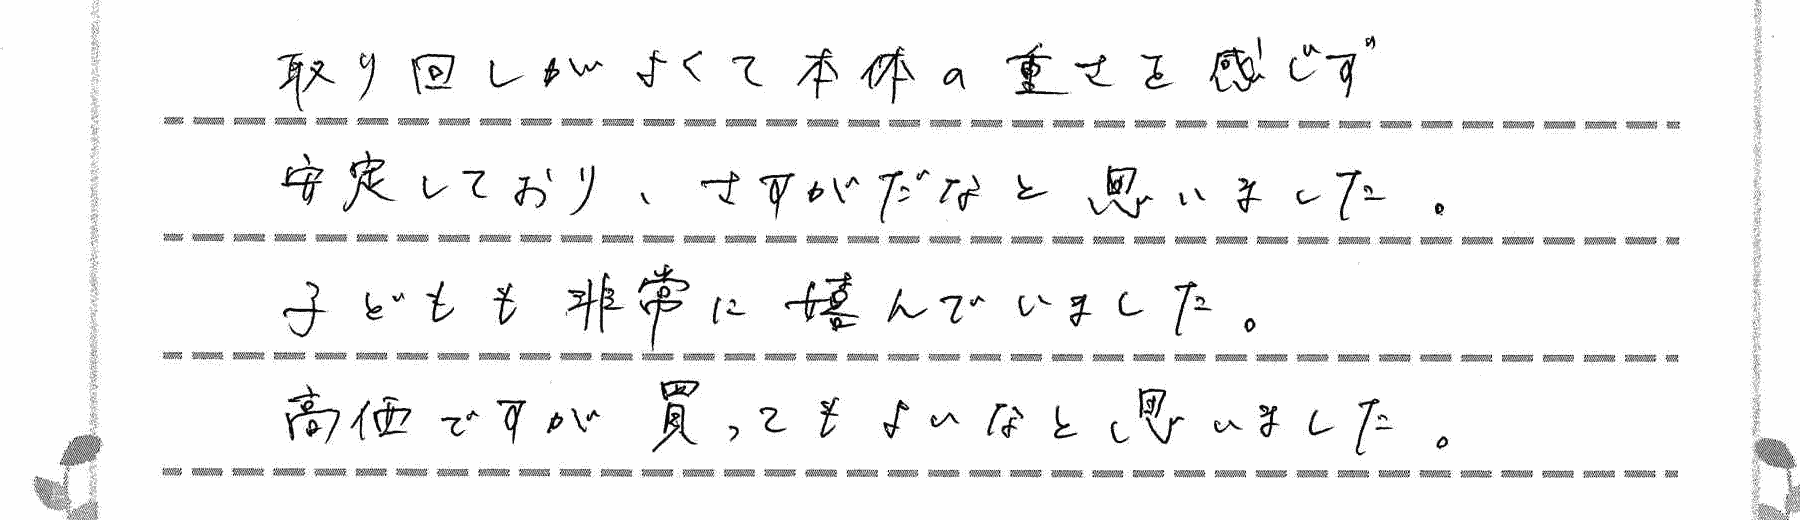 取り回しがよくて本体の重さを感じず
安定しており、さすがだなと思いました。
子どもも非常に嬉んでいました。
高価ですが買ってもよいなと思いました。